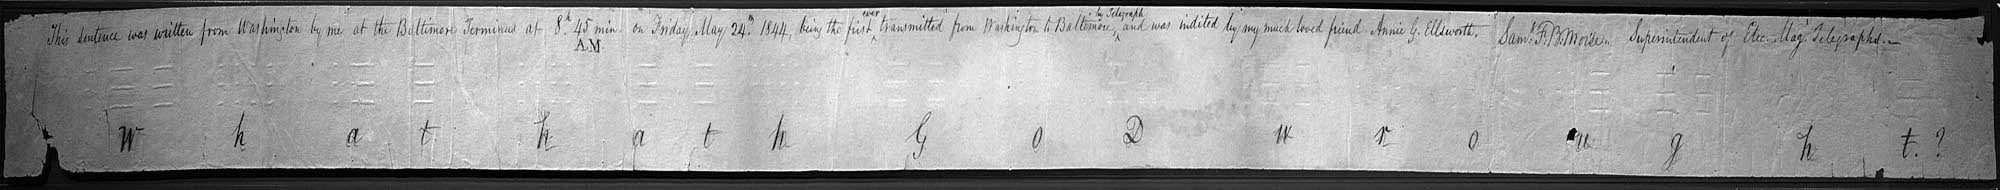 This sentence was written from Washington by me at the Baltimore Terminus at 8h 45 min A.M. on Friday May 24th 1844, being the first ever transmitted from Washington to Baltimore, by Telegraph and was indited by my much loved friend Annie G. Ellsworth. Saml. F. B. Morse. Superintendent of Elec. Mag. Telegraphs.
W h a t h a t h G o D w r o u g h t. ?